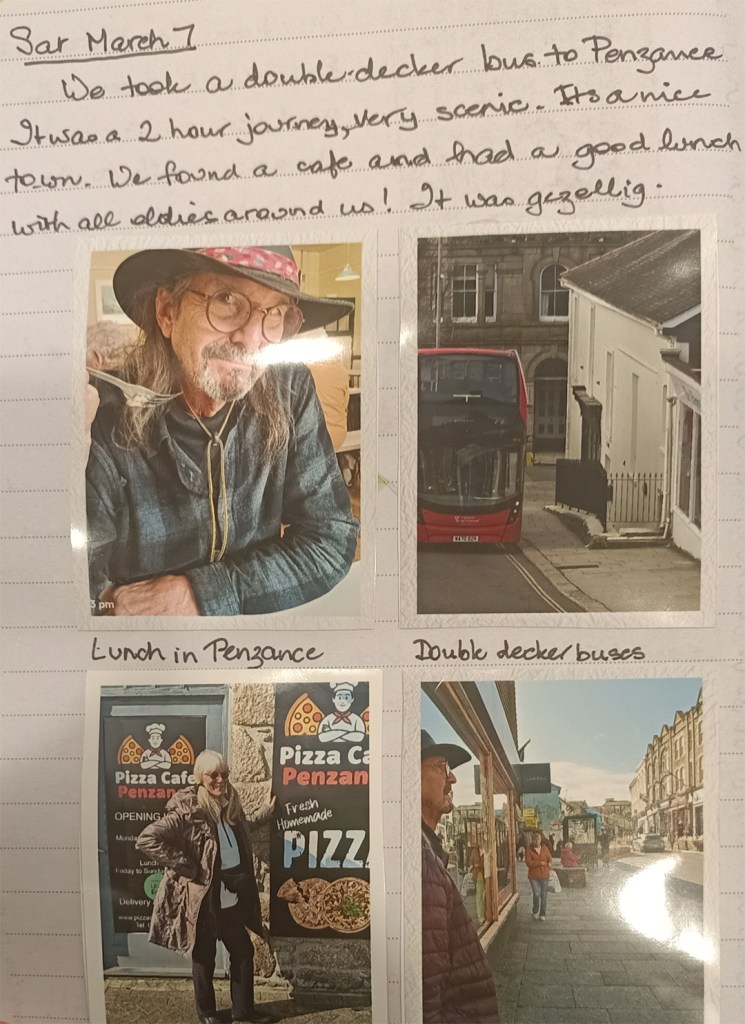 Sat March 7
We took a double-decker bus to Penzance
It was a 2 hour journey, very scenic. Its a nice
town. We found a cafe and had a good lunch
with all oldies around us! It was gezellig.
3 pm
Lunch in Penzance
Double decker buses
Pizza Cafe
Penzan
OPENING
Monda
Lunch
Friday to Sunda
Delivery
www.pizza
Pizza Ca
Penzan
Fresh
Homemade
PIZZ